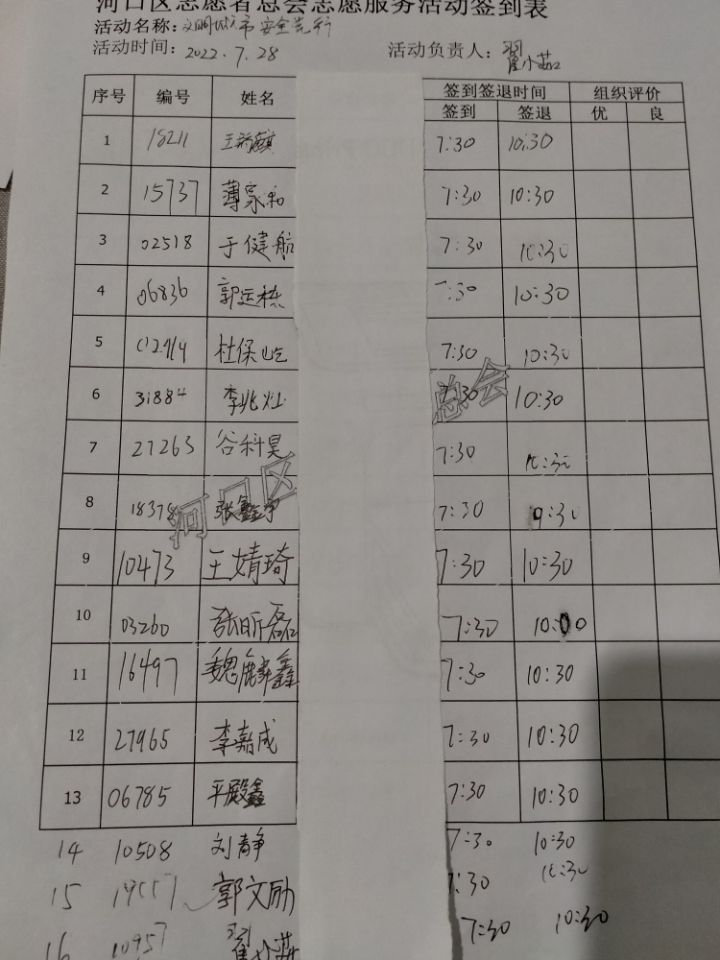 河口区志愿者总会志愿服务活动签到表
活动名称：文明城市 安全先行
活动时间：2022.7.28 活动负责人：翟小茹
序号 编号 姓名 签到签退时间 组织评价
签到 签退 优 良
1 18211 王 7:30 10:30
2 15737 薄家和 7:30 10:30
3 02518 于健航 7:30 10:30
4 06836 郭运栋 7:30 10:30
5 杜保屹 7:30 10:30
6 31884 李兆灶 7:30 10:30
7 27263 谷科昊 7:30 10:30
8 18378 张鑫宇 7:30 9:30
9 10473 王婧琦 7:30 10:30
10 03260 张昕磊 7:30 10:00
11 16497 魏麟鑫 7:30 10:30
12 27965 李嘉成 7:30 10:30
13 06785 平殿鑫 7:30 10:30
14 10508 刘静 7:30 10:30
15 郭文励 7:30 10:30
16 10957 翟小茹 7:30 10:30
河口区 总会